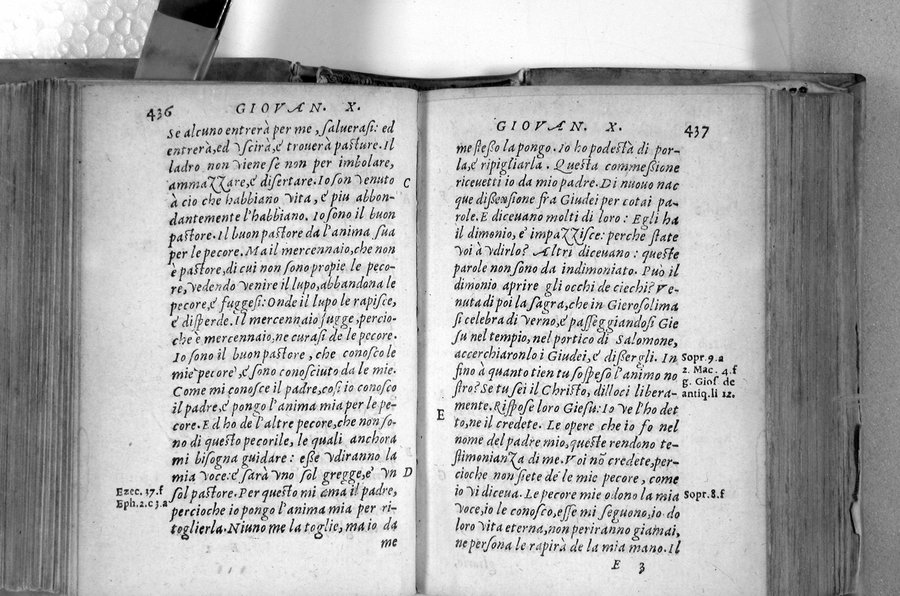 436 GIOVAN. X.
Se alcuno entrerà per me, saluerasi: ed
entrerà, ed vscirà, e trouerà pasture. Il
ladro non viene se non per imbolare,
ammazzare, e disertare. Io son venuto
à cio che habbiano vita, e piu abbon-
dantemente l'habbiano. Io sono il buon
pastore. Il buon pastore da l'anima sua
per le pecore. Ma il mercennaio, che non
è pastore, di cui non sono propie le peco-
re, vedendo venire il lupo, abbandona le
pecore, e fuggesi: Onde il lupo le rapisce,
e disperde. Il mercennaio fugge, percio-
che è mercennaio, ne curasi de le pecore.
Io sono il buon pastore, che conosco le
mie pecore, e sono conosciuto da le mie.
Come mi conosce il padre, cosi io conosco
il padre, e pongo l'anima mia per le pe-
core. Ed ho de l'altre pecore, che non so-
no di questo pecorile, le quali anchora
mi bisogna guidare: esse vdiranno la
mia voce: e sarà vno sol gregge, e vn
sol pastore. Per questo mi ama il padre,
percioche io pongo l'anima mia per ri-
toglierla. Niuno me la toglie, ma io da
me
C
D
Ezec. 37.f
Eph. 2.c 3.a
GIOVAN. X. 437
me stesso la pongo. Io ho podestà di por-
la, e ripigliarla. Questa commessione
riceuetti io da mio padre. Di nuouo nac
que dissensione fra Giudei per cotai pa-
role. E diceuano molti di loro: Egli ha
il dimonio, e impazzisce: perche state
voi à vdirlo? Altri diceuano: queste
parole non sono da indimoniato. Può il
dimonio aprire gli occhi de ciechi? Ve-
nuta di poi la sagra, che in Gierosolima
si celebra di verno, e passeggiandosi Gie
su nel tempio, nel portico di Salomone,
accerchiaronlo i Giudei, e dissergli. In
fino à quanto tien tu sospeso l'animo no
stro? Se tu sei il Christo, dilloci libera-
mente. Rispose loro Giesu: Io ve l'ho det
to, ne il credete. Le opere che io fo nel
nome del padre mio, queste rendono te-
stimonianza di me. Voi nō credete, per-
cioche non siete de le mie pecore, come
io vi diceua. Le pecore mie odono la mia
voce, io le conosco, esse mi seguono, io do
loro vita eterna, non periranno giamai,
ne persona le rapirà de la mia mano. Il
E 3
E
Sopr. 9.a
2. Mac. 4.f
g. Gios de
antiq.li 12.
Sopr. 8.f